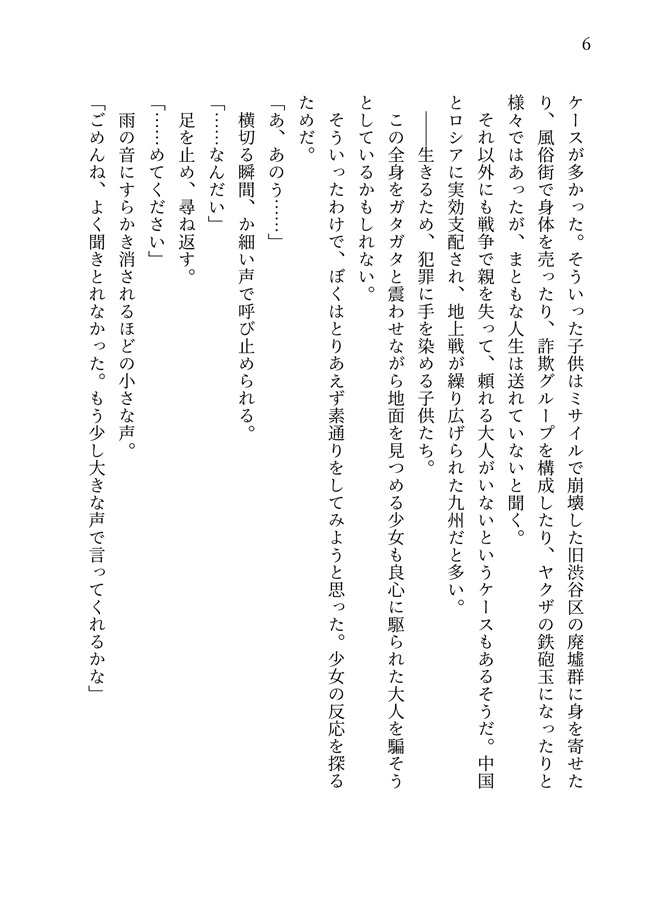 6
ケースが多かった。そういった子供はミサイルで崩壊した旧渋谷区の廃墟群に身を寄せた
り、風俗街で身体を売ったり、詐欺グループを構成したり、ヤクザの鉄砲玉になったりと
様々ではあったが、まともな人生は送れていないと聞く。
　それ以外にも戦争で親を失って、頼れる大人がいないというケースもあるそうだ。中国
とロシアに実効支配され、地上戦が繰り広げられた九州だと多い。
　――生きるため、犯罪に手を染める子供たち。
　この全身をガタガタと震わせながら地面を見つめる少女も良心に駆られた大人を騙そう
としているかもしれない。
　そういったわけで、ぼくはとりあえず素通りをしてみようと思った。少女の反応を探る
ためだ。
「あ、あのう……」
　横切る瞬間、か細い声で呼び止められる。
「……なんだい」
　足を止め、尋ね返す。
「……めてください」
　雨の音にすらかき消されるほどの小さな声。
「ごめんね、よく聞きとれなかった。もう少し大きな声で言ってくれるかな」